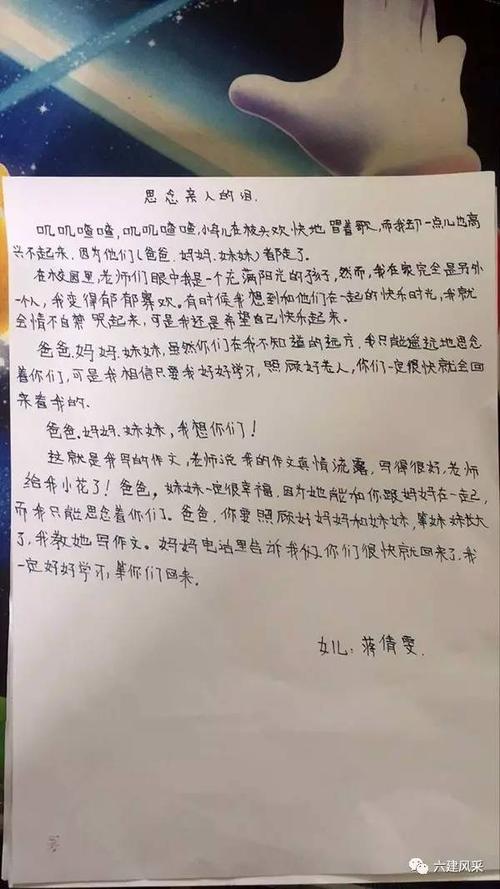 思念亲人的泪.
叽叽喳喳,叽叽喳喳,小鸟儿在枝头欢快地唱着歌,而我却一点儿也高
兴不起来,因为他们(爸爸.妈妈.妹妹)都走了。
在校园里,老师们眼中我是一个充满阳光的孩子,然而,我在家完全是另外
一个人,我变得郁郁寡欢。有时候我想到和他们在一起的快乐时光,我就
会情不自禁哭起来,可是我还是希望自己快乐起来。
爸爸.妈妈.妹妹,虽然你们在我不知道的远方,我只能遥远地思念
着你们,可是我相信只要我好好学习,照顾好老人,你们一定很快就会回
来看我的.
爸爸.妈妈.妹妹,我想你们!
这就是我写的作文,老师说我的作文真情流露,写得很好,老师
给我小花了!爸爸,妹妹一定很幸福,因为她能和你跟妈妈在一起,
而我只能思念着你们。爸爸,你要照顾好妈妈和妹妹,等妹妹长大
了,我教她写作文。妈妈电话里告诉我们,你们很快就回来了,我
一定好好学习,等你们回来。
女儿:蒋倩雯.
六建风采